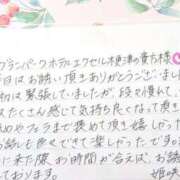 グランパークホテルエクセル木更津の貴方様
本日はお誘い頂きありがとうございました
最初は緊張していましたが、段々慣れて
たくさん感じて気持ち良くなって頂き
やフェラまで褒めて頂き嬉しかった
色々できて楽しかったです。
に来た際、お時間が合えば、お誘い
ております。
姫咲